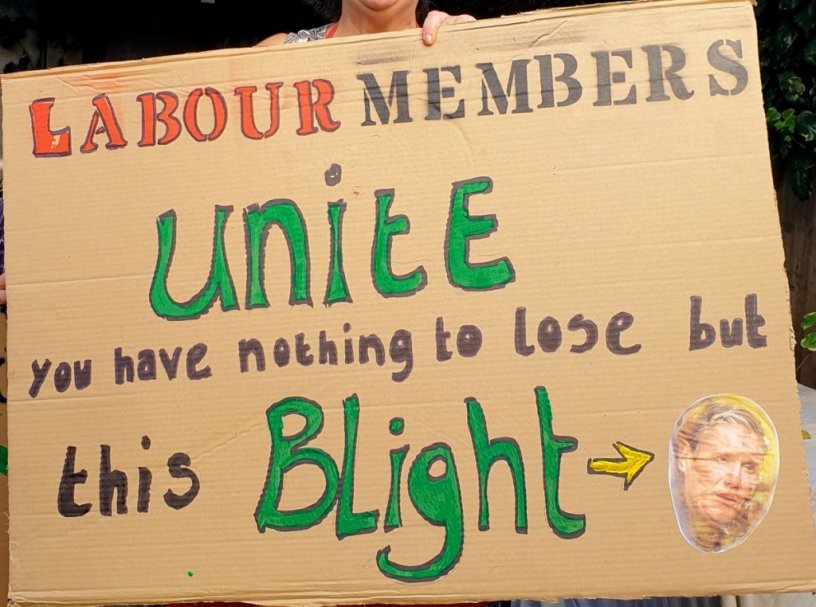 LABOUR MEMBERS
UNitE
you have nothing to lose but
this BLight